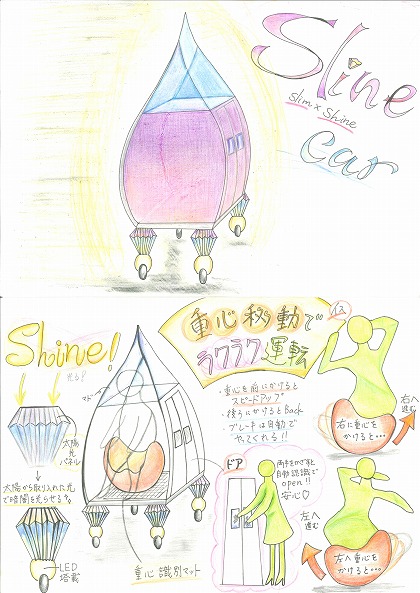 Sline
slim × Shine
car
Shine!
光る?
マド
太陽光
パネル
太陽から取り入れた光
で暗闇を光らせる?
LED
搭載
重心移動で
ラクラク運転
・重心を前にかけると
スピードアップ
・後ろにかけるとBack
・ブレーキは自動で
やってくれる!!
重心識別マット
ドア
両手をかざすと
自動認識で
open!!
安心♡
イス
右へ
進む
右に重心を
かけると…
左へ
進む
左へ重心を
かけると…